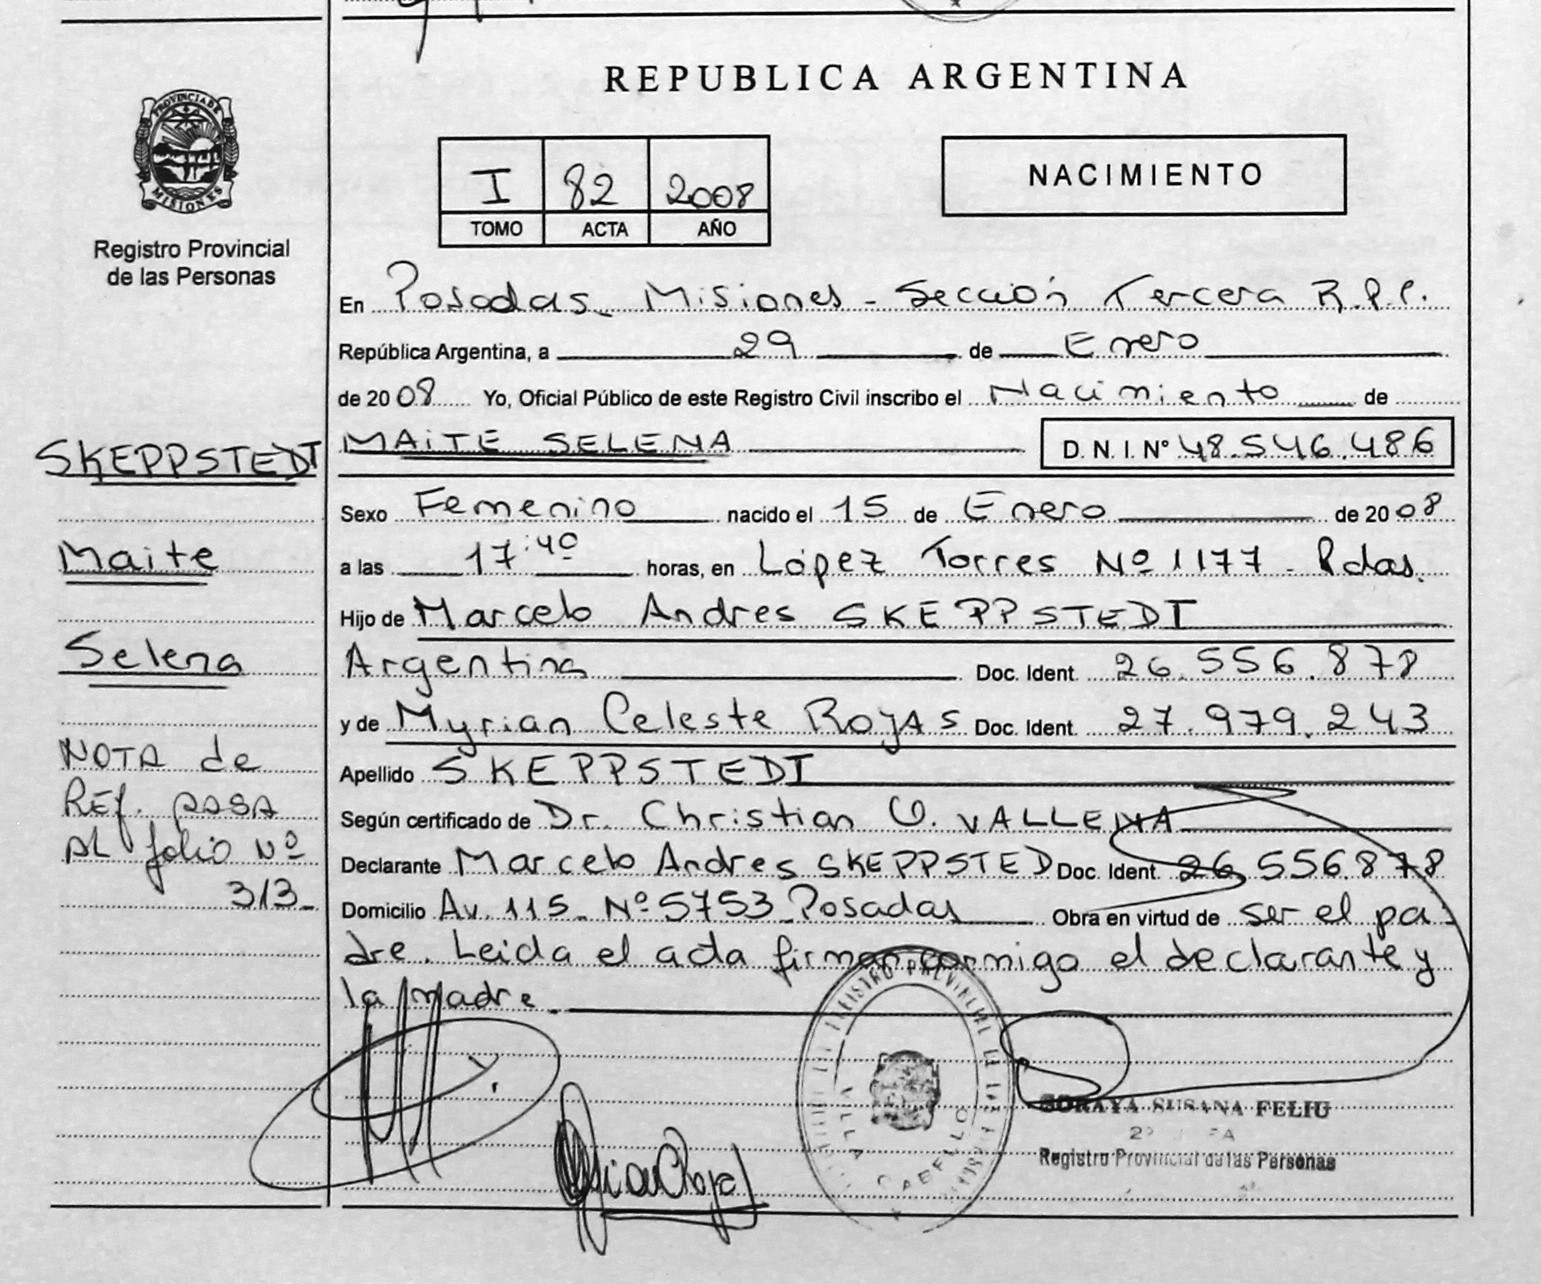 REPUBLICA ARGENTINA
PROVINCIA DE
MISIONES
Registro Provincial
de las Personas
I 82 2008
TOMO ACTA AÑO
NACIMIENTO
En Posadas Misiones - Sección Tercera R.P.P.
República Argentina, a 29 de Enero
de 2008 Yo, Oficial Público de este Registro Civil inscribo el Nacimiento de
SKEPPSTEDT MAITE SELENA D. N. I. Nº 48.546.486
Sexo Femenino nacido el 15 de Enero de 2008
Maite
a las 17:40 horas, en López Torres Nº 1177 - Pdas.
Hijo de Marcelo Andres SKEPPSTEDT
Selena
Argentina Doc. Ident. 26.556.878
y de Myrian Celeste ROJAS Doc. Ident. 27.979.243
NOTA de
Apellido SKEPPSTEDT
REf. PASA
Según certificado de Dr. Christian O. VALLENA
AL folio Nº
Declarante Marcelo Andres SKEPPSTED Doc. Ident. 26 556.878
313-
Domicilio Av. 115 - Nº 5753 Posadas Obra en virtud de ser el pa-
dre. Leida el acta firman conmigo el declarante y
la madre.
SORAYA SUSANA FELIU
Registro Provincial de las Personas